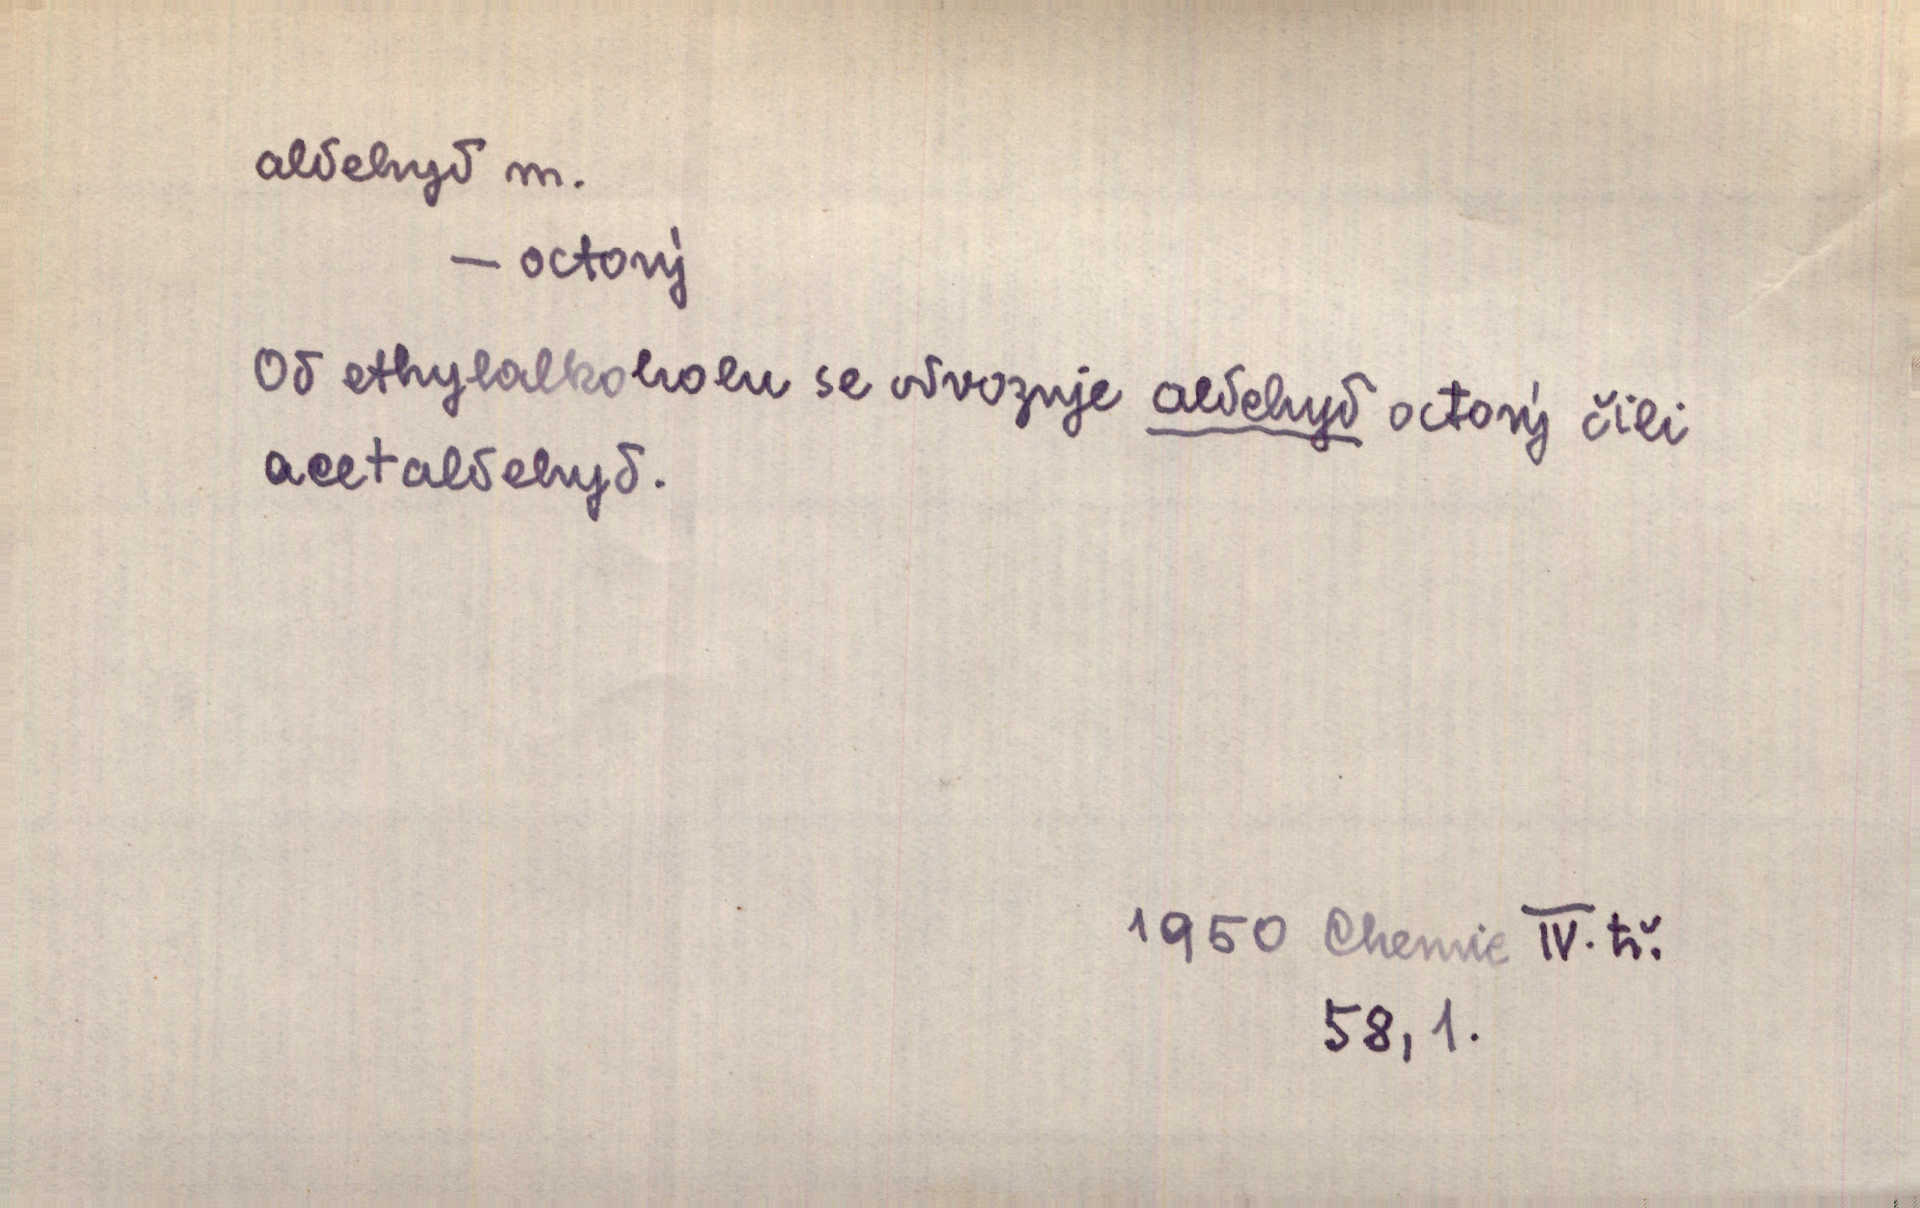 aldehyd m.
— octový
Od ethylalkoholu se odvozuje aldehyd octový čili
acetaldehyd.
1950 Chemie IV. tř.
58, 1.